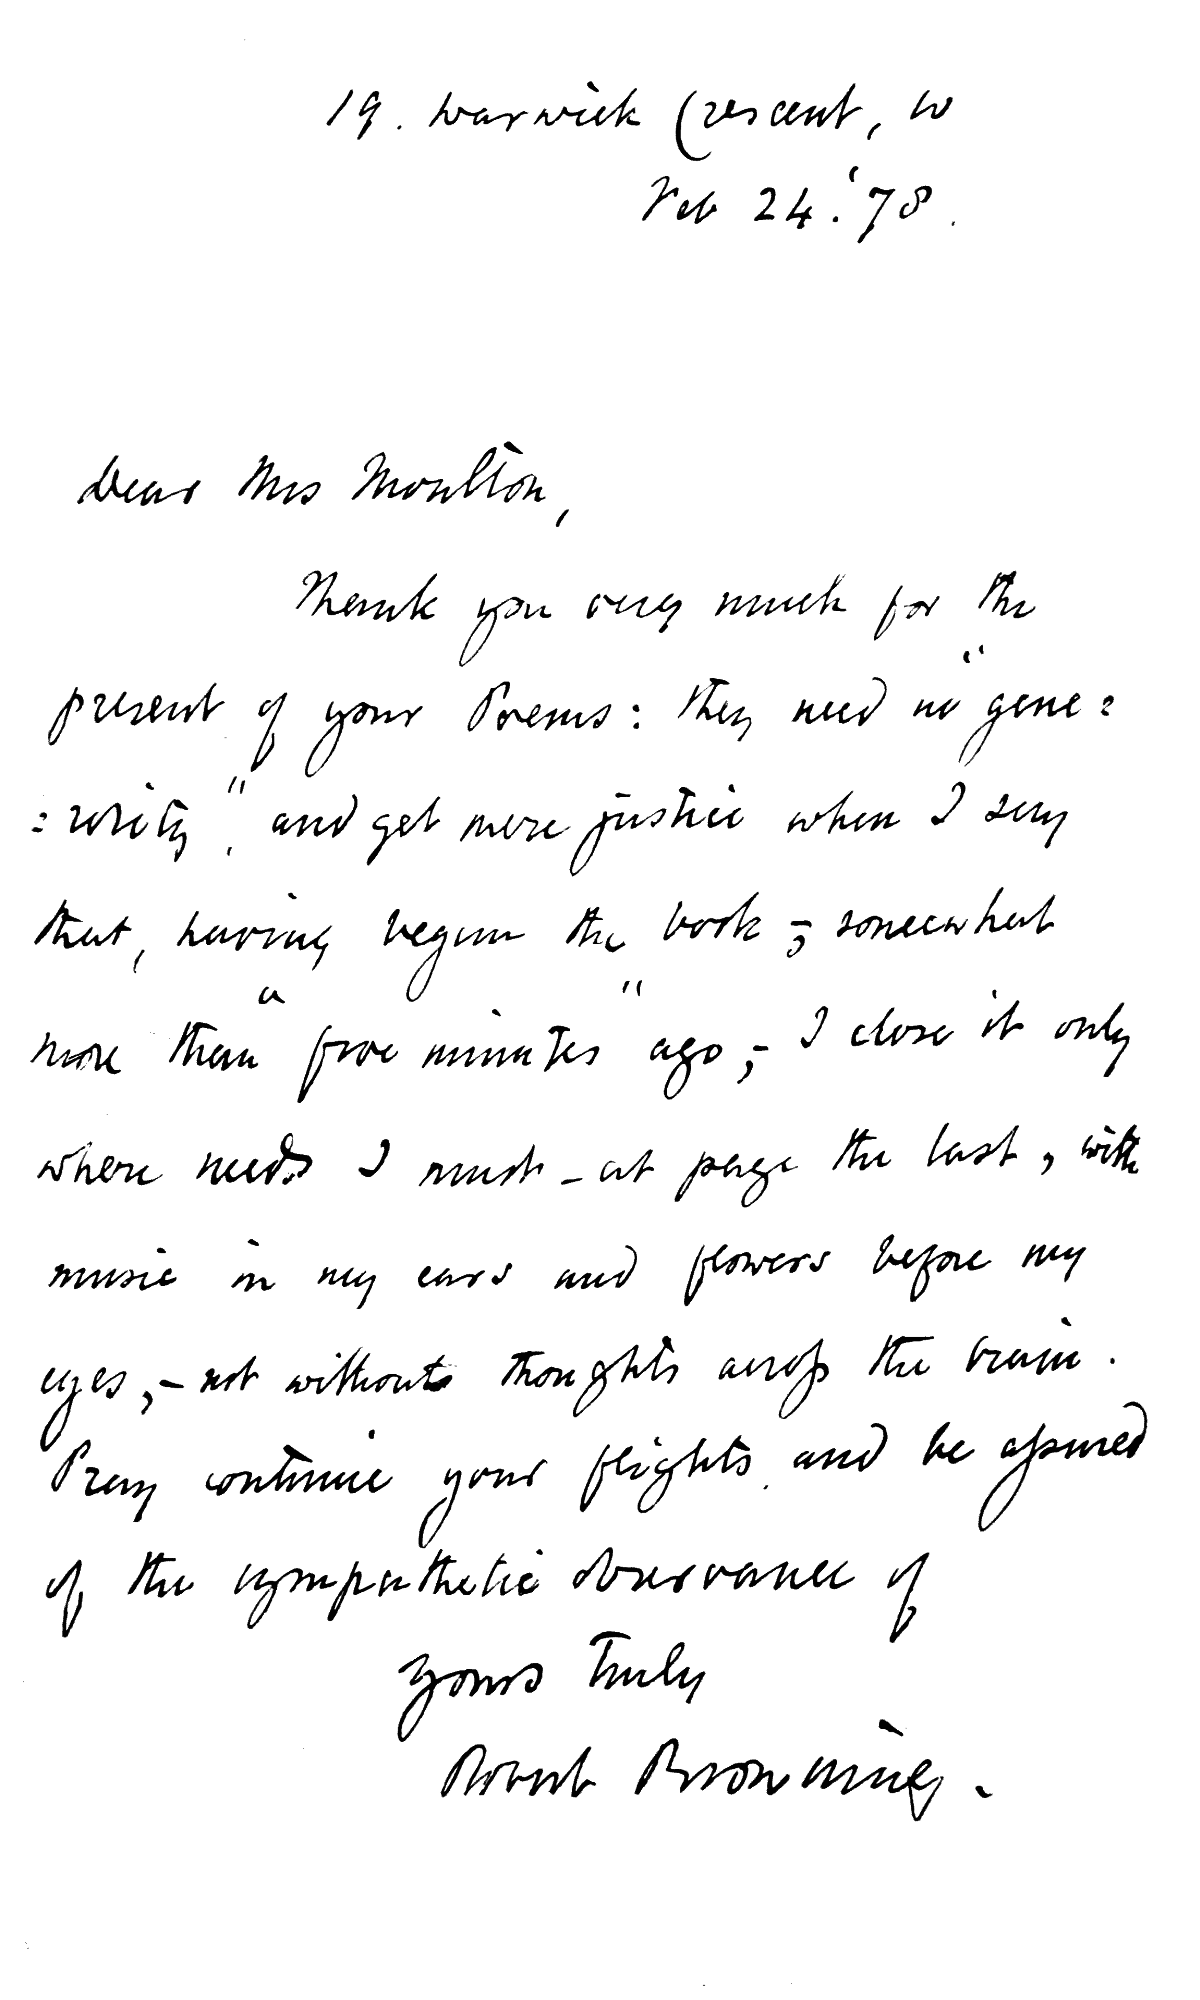 19. Warwick Crescent, W
Feb 24. '78.
Dear Mrs Moulton,
Thank you very much for the
present of your Poems: they need no "gene=
=rosity", and get mere justice when I say
that, having begun the book, – somewhat
more than "five minutes" ago, – I close it only
where needs I must – at page the last, with
music in my ears and flowers before my
eyes, – not without thoughts across the brain.
Pray continue your flights, and be assured
of the sympathetic observance of
Yours truly
Robert Browning.